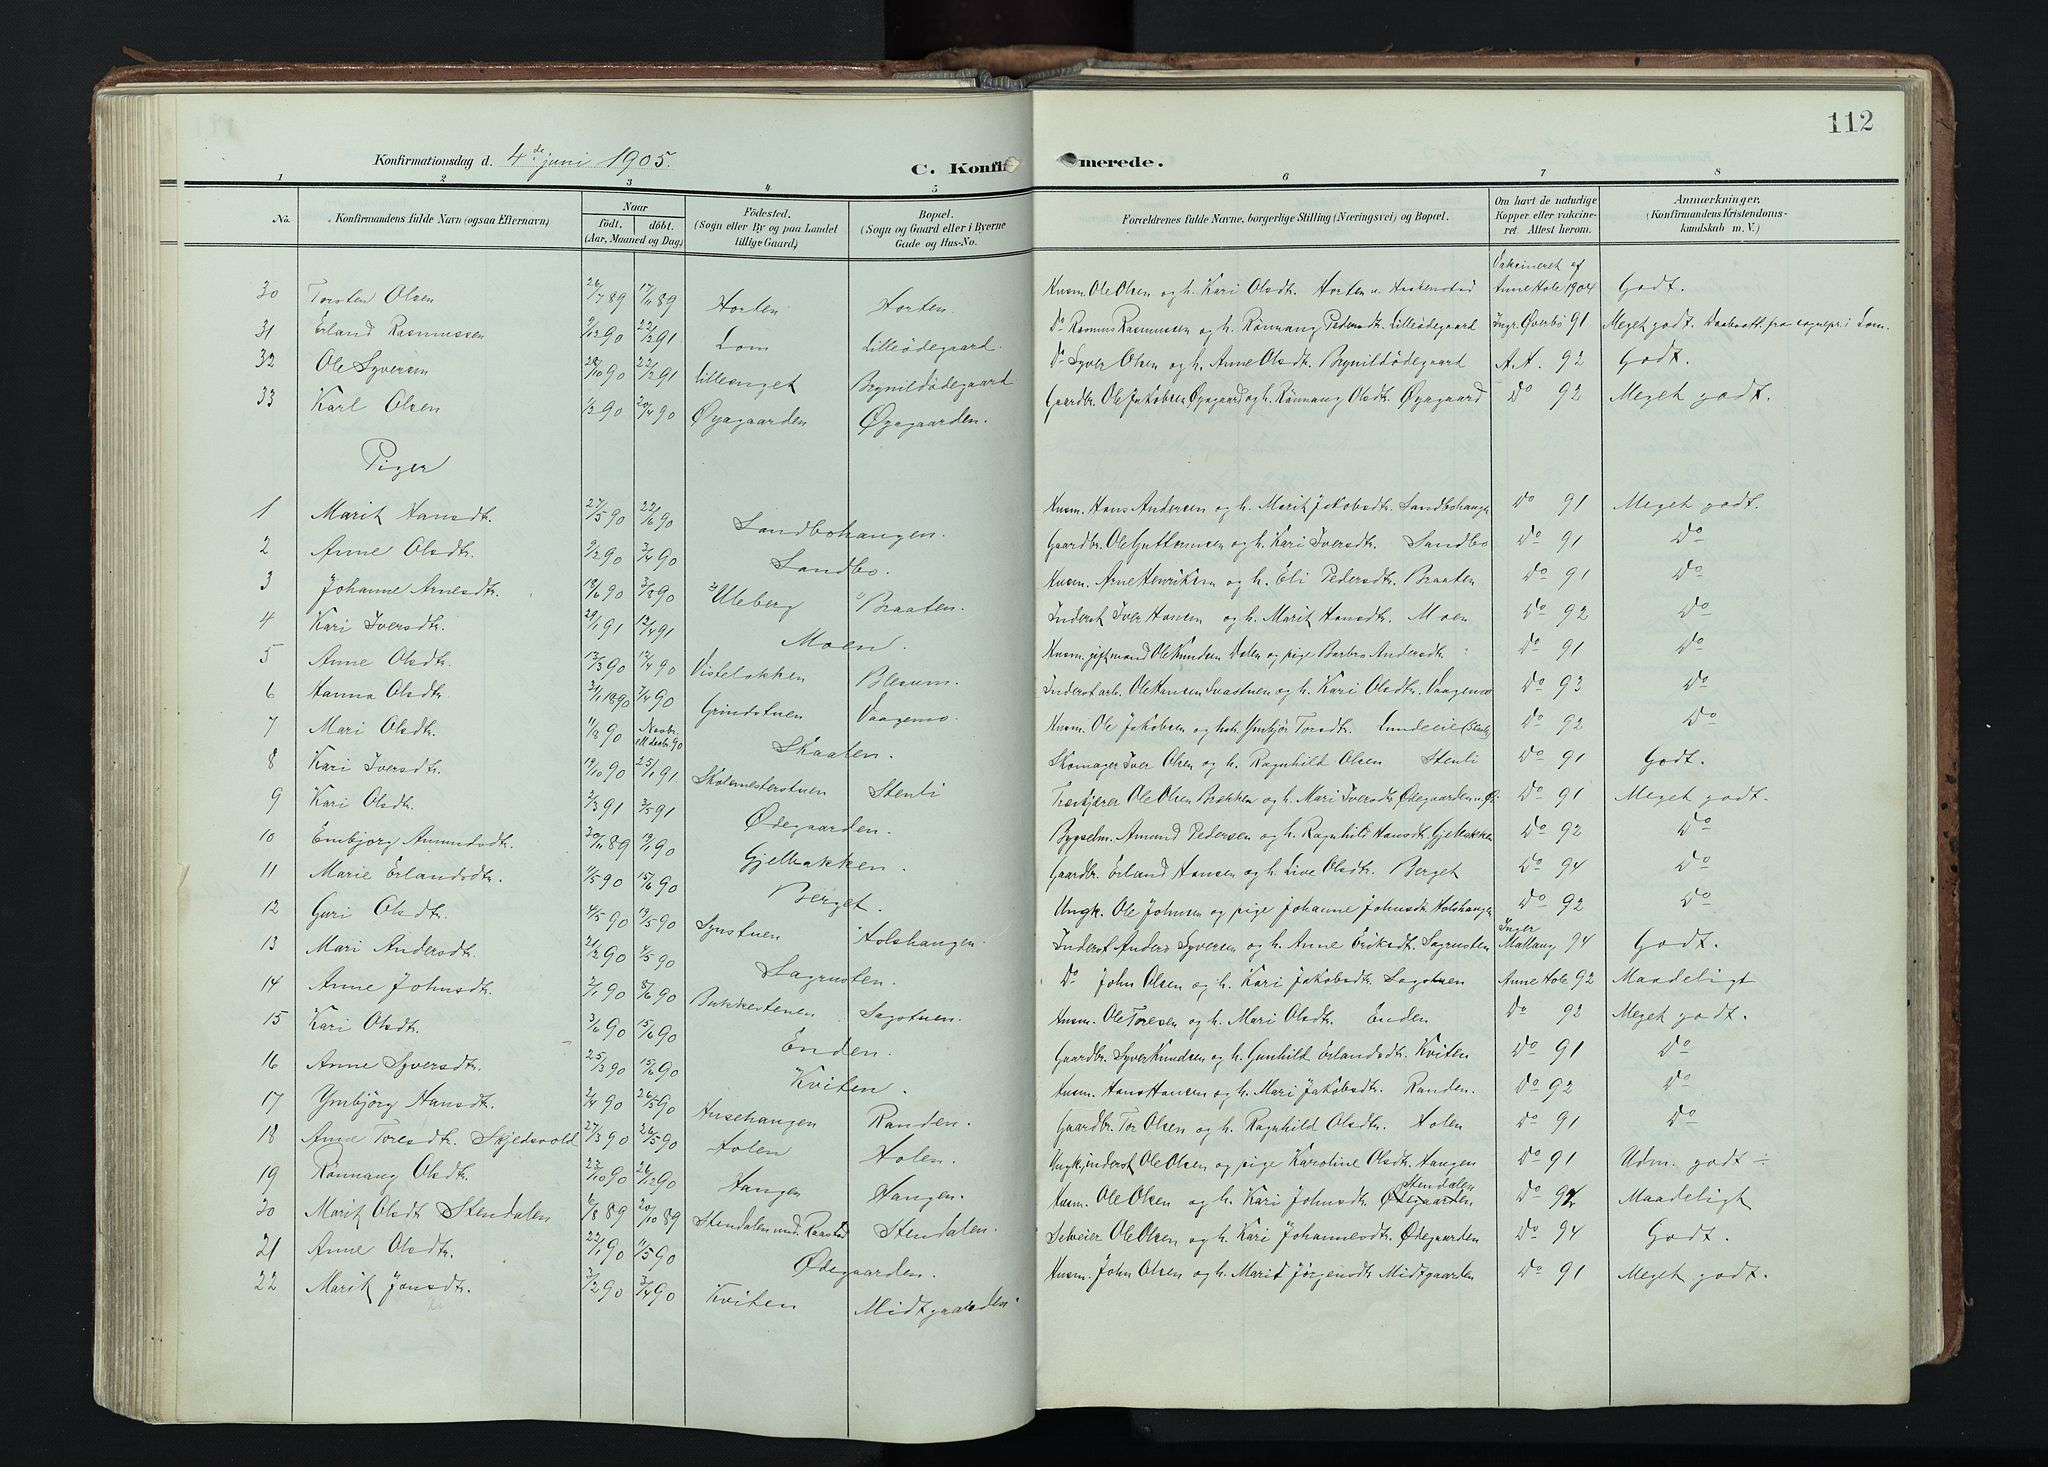 112
Konfirmationsdag d. 4de juni 1905.
C. Konfirmerede.
1 2 3 4 5 6 7 8
No. Konfirmandens fulde Navn (ogsaa Efternavn) Naar födt. döbt. (Aar, Maaned og Dag) Födested. (Sogn eller By og paa Landet tillige Gaard) Bopæl. (Sogn og Gaard eller i Byerne Gade og Hus-No. Forældrenes fulde Navne, borgerlige Stilling (Næringsvei) og Bopæl. Om havt de naturlige Kopper eller vaccineret. Attest herom. Anmærkninger, (Konfirmandens Kristendomskundskab m. V.)
30 Torsten Olsen 26/7 89 17/11 89 Horten Horten. Husm. Ole Olsen og h. Kari Olsdtr. Horten u. Vakcineret af Anne Hole 1904 Godt.
31 Erland Rasmussen 9/12 90 22/2 91 Lom Lilleødegaard. Do Rasmus Rasmussen og h. Rønnaug Pedersdtr. Lilleødegaard Ingr. Øverbø 91 Meget godt. Daabsatt. fra sognepr. i Lom.
32 Ole Syversen 28/10 90 22/2 91 Lilleenget Brynildødegaard Do Syver Olsen og h. Anne Olsdtr. Brynildødegaard A.H. 92 Godt.
33 Karl Olsen 1/2 90 20/4 90 Øyagaarden Øygaarden. Gaardbr. Ole Jakobsen Øyagaard og h. Rønnaug Olsdtr. Øyagaard Do 92 Meget godt.
Piger
1 Marit Hansdtr. 27/5 90 22/6 90 Sandbohaugen. Husm. Hans Andersen og h. Marit Jakobsdtr. Sandbohaugen Do 91 Meget godt.
2 Anne Olsdtr. 9/2 90 3/4 90 Sandbo. Gaardbr. Ole Guttormsen og h. Kari Iversdtr. Sandbo Do 91 Do
3 Johanne Arnesdtr. 18/6 90 3/8 90 Uleberg Braaten. Husm. Arne Henriksen og h. Eli Pedersdtr. Braaten Do 91 Do
4 Kari Iversdtr. 29/1 91 12/4 91 Moen. Inderst Iver Hansen og h. Marit Hansdtr. Moen Do 92 Do
5 Anne Olsdtr. 13/3 90 13/4 90 Visteløkken Blessum. Husm. gift mand Ole Knudsen Dalen og pige Barbro Andersdtr. Do 91 Do
6 Hanna Olsdtr. 31/1 1890 7/4 90 Grindstuen Vaagemo. Inderst arb. Ole Hansen Svastuen og h. Kari Olsdtr. Vaagemo Do 93 Do
7 Mari Olsdtr. 11/8 90 Novbr. ell decbr. 90 Skaaten. Husm. Ole Jakobsen og hstr. Ymbjør Torsdtr. Lundeeie Do 92 Do
8 Kari Iversdtr. 19/10 90 25/1 91 Skolemesterstuen Stenli Skomager Iver Olsen og h. Ragnhild Olsen Stenli Do 91 Godt.
9 Kari Olsdtr. 2/3 91 3/5 91 Ødegaarden. Træskjærer Ole Olsen Brekken og h. Mari Iversdtr. Ødegaarden Do 91 Meget godt.
10 Embjørg Amundsdtr. 30/11 89 19/1 90 Gjelbakken. Bygselm. Amund Pedersen og h. Ragnhild Hansdtr. Gjelbakken Do 92 Do
11 Marie Erlandsdtr. 11/5 90 15/6 90 Berget. Gaardbr. Erland Hansen og h. Live Olsdtr. Berget Do 94 Do
12 Guri Olsdtr. 4/5 90 19/5 90 Synstuen Holshaugen. Ungk. Ole Johnsen og pige Johanne Johnsdtr. Holshaugen Do 92 Do
13 Mari Andersdtr. 21/2 90 4/5 90 Sagrusten. Inderst Anders Syversen og h. Anne Eriksdtr. Sagrusten Inger Mattang 94 Godt.
14 Anne Johnsdtr. 2/1 90 8/6 90 Bakkestuen Sagstuen. Do John Olsen og h. Kari Jakobsdtr. Sagstuen Anne Hole 92 Maadeligt
15 Kari Olsdtr. 3/6 90 15/6 90 Enden. Husm. Ole Toresen og h. Mari Olsdtr. Enden Do 92 Meget godt.
16 Anne Syversdtr. 25/3 90 15/6 90 Kviten. Gaardbr. Syver Knudsen og h. Gunhild Erlandsdtr. Kviten Do 91 Do
17 Ymbjörg Hansdtr. 2/4 90 26/5 90 Husehaugen Randen. Husm. Hans Hansen og h. Mari Jakobsdtr. Randen. Do 92 Do
18 Anne Toresdtr. Skjedsvold 27/3 90 26/5 90 Holen Holen. Gaardbr. Tor Olsen og h. Ragnhild Olsdtr. Holen Do 91 Do
19 Rønnaug Olsdtr. 23/10 90 26/12 90 Haugen Haugen. Ungk, inderst Ole Olsen og pige Karoline Olsdtr. Haugen Do 91 Udm. godt ÷
20 Marit Olsdtr Stendalen 6/8 89 20/10 89 Stendalen und. Raastad Stendalen. Husm. Ole Olsen og h. Kari Johnsdtr. Ødegaarden Stendalen Do 92 Maadeligt
21 Anne Olsdtr. 22/1 90 11/5 90 Ødegaarden. Selveier Ole Olsen og h. Kari Johannesdtr. Ødegaarden Do 94 Godt.
22 Marit Jonsdtr. 3/2 90 3/4 90 Kviten Midtgaarden. Husm. John Olsen og h. Marit Jørgensdtr Midtgaarden Do 91 Meget godt.